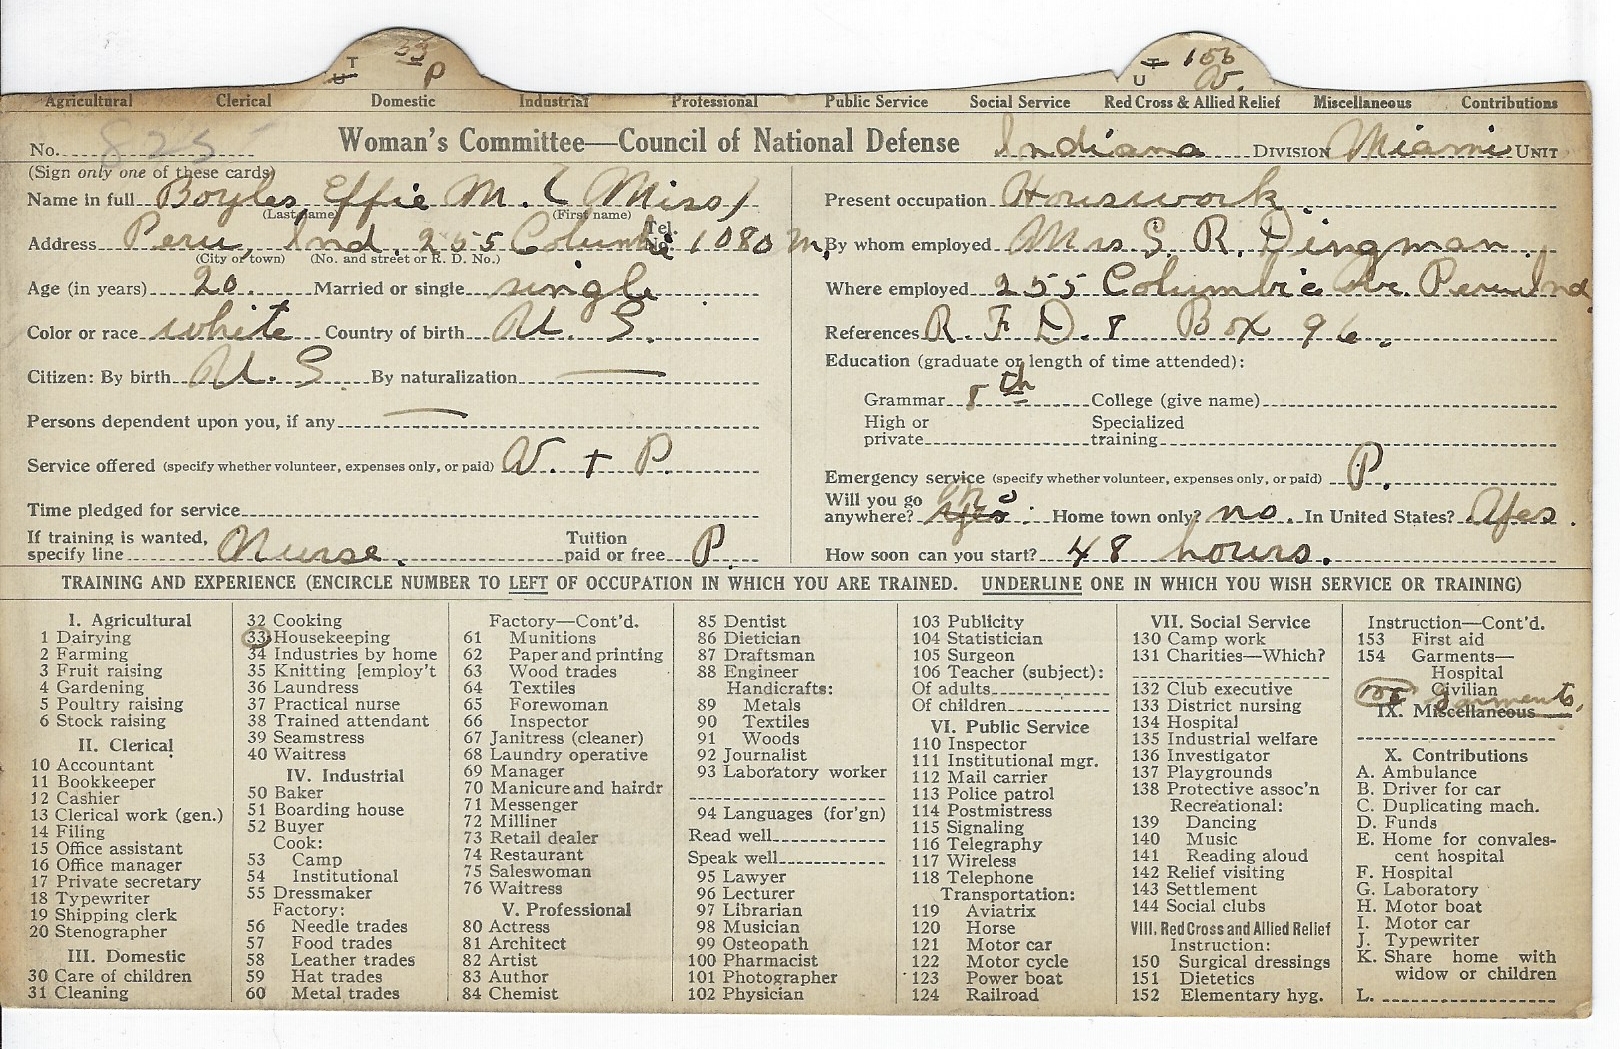 T 33
U P
T 155
U V.
Agricultural Clerical Domestic Industrial Professional Public Service Social Service Red Cross & Allied Relief Miscellaneous Contributions
No. 825 Woman's Committee—Council of National Defense Indiana DIVISION Miami UNIT
(Sign only one of these cards)
Name in full Boyles Effie M. (Miss)
(Last name) (First name)
Address Peru, Ind. 255 Columbi Tel. No. 1080 M.
(City or town) (No. and street or R. D. No.)
Age (in years) 20. Married or single single
Color or race white Country of birth U. S.
Citizen: By birth U. S. By naturalization —
Persons dependent upon you, if any —
Service offered (specify whether volunteer, expenses only, or paid) V. + P.
Time pledged for service
If training is wanted, specify line Nurse. Tuition paid or free P.
Present occupation Housework
By whom employed Mrs S. R. Dingman.
Where employed 255 Columbia Av. Peru Ind
References R. F. D. 8 Box 96.
Education (graduate or length of time attended):
Grammar 8th College (give name)
High or private Specialized training
Emergency service (specify whether volunteer, expenses only, or paid) P.
Will you go anywhere? no Yes. Home town only? no. In United States? Yes.
How soon can you start? 48 hours.
TRAINING AND EXPERIENCE (ENCIRCLE NUMBER TO LEFT OF OCCUPATION IN WHICH YOU ARE TRAINED. UNDERLINE ONE IN WHICH YOU WISH SERVICE OR TRAINING)
I. Agricultural
1 Dairying
2 Farming
3 Fruit raising
4 Gardening
5 Poultry raising
6 Stock raising
II. Clerical
10 Accountant
11 Bookkeeper
12 Cashier
13 Clerical work (gen.)
14 Filing
15 Office assistant
16 Office manager
17 Private secretary
18 Typewriter
19 Shipping clerk
20 Stenographer
III. Domestic
30 Care of children
31 Cleaning
32 Cooking
33 Housekeeping
34 Industries by home
35 Knitting [employ't
36 Laundress
37 Practical nurse
38 Trained attendant
39 Seamstress
40 Waitress
IV. Industrial
50 Baker
51 Boarding house
52 Buyer
Cook:
53 Camp
54 Institutional
55 Dressmaker
Factory:
56 Needle trades
57 Food trades
58 Leather trades
59 Hat trades
60 Metal trades
Factory—Cont'd.
61 Munitions
62 Paper and printing
63 Wood trades
64 Textiles
65 Forewoman
66 Inspector
67 Janitress (cleaner)
68 Laundry operative
69 Manager
70 Manicure and hairdr
71 Messenger
72 Milliner
73 Retail dealer
74 Restaurant
75 Saleswoman
76 Waitress
V. Professional
80 Actress
81 Architect
82 Artist
83 Author
84 Chemist
85 Dentist
86 Dietician
87 Draftsman
88 Engineer
Handicrafts:
89 Metals
90 Textiles
91 Woods
92 Journalist
93 Laboratory worker
94 Languages (for'gn)
Read well
Speak well
95 Lawyer
96 Lecturer
97 Librarian
98 Musician
99 Osteopath
100 Pharmacist
101 Photographer
102 Physician
103 Publicity
104 Statistician
105 Surgeon
106 Teacher (subject):
Of adults
Of children
VI. Public Service
110 Inspector
111 Institutional mgr.
112 Mail carrier
113 Police patrol
114 Postmistress
115 Signaling
116 Telegraphy
117 Wireless
118 Telephone
Transportation:
119 Aviatrix
120 Horse
121 Motor car
122 Motor cycle
123 Power boat
124 Railroad
VII. Social Service
130 Camp work
131 Charities—Which?
132 Club executive
133 District nursing
134 Hospital
135 Industrial welfare
136 Investigator
137 Playgrounds
138 Protective assoc'n
Recreational:
139 Dancing
140 Music
141 Reading aloud
142 Relief visiting
143 Settlement
144 Social clubs
VIII. Red Cross and Allied Relief
Instruction:
150 Surgical dressings
151 Dietetics
152 Elementary hyg.
Instruction—Cont'd.
153 First aid
154 Garments—
Hospital
Civilian
155 Garments,
IX. Miscellaneous
X. Contributions
A. Ambulance
B. Driver for car
C. Duplicating mach.
D. Funds
E. Home for convales-
cent hospital
F. Hospital
G. Laboratory
H. Motor boat
I. Motor car
J. Typewriter
K. Share home with
widow or children
L.